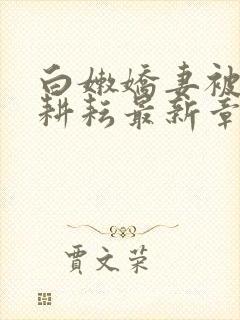 白嫩嬌妻被
耕耘最新章
賈文荣